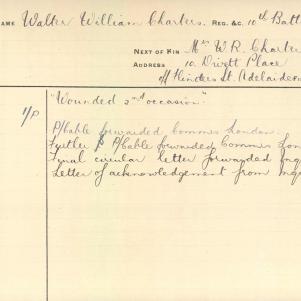 AME Walter William Charters. REG. &C. 10th Batt
NEXT OF KIN Mrs W. R. Charter
ADDRESS 10 Divett Place
off Flinders St. Adelaide
"Wounded 2nd occasion"
1/P
P/Cable forwarded Commrs London.
Further P/Cable forwarded Commrs Lon
Final circular letter forwarded Enq
Letter of acknowledgement from Enq